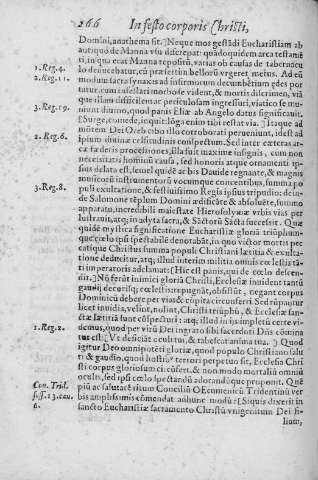 266 In festo corporis Christi,
Domini, anathema sit. Neque mos gestādi Eucharistiam ab
antiquo de Manna vsu discrepat: quādoquidem arca testamē
ti, in qua erat Manna repositū, varias ob causas de tabernacu
1.Reg.4.
lo deducebatur, cū præsertim bellorū vrgeret metus. Ad eū
2.Reg.11.
modum sacra synaxis ad infirmorum decumbētium ędes por
tatur, cum infestari morbos vident, & mortis discrimen, vt à
que illam difficilem ac periculosam ingressuri, viatico se mu
3.Reg.19.
niunt diuino, quod panis Eliæ ab Angelo datus significauit.
Surge, comede, inquit: lōga enim tibi restat via. Itaque ad
mōtem Dei Oreb cibo illo corroborati perueniunt, idest ad
2.Reg.6.
ipsum diuinæ celsitudinis conspectum. Sed inter cæteras ar
cæ fœderis processiones, illa fuit maxime insignis, cum non
necessitatis hominū causa, sed honoris atque ornamenti ip-
sius delata est, semel quidē ac bis Dauide regnante, & magnis
musicorū instrumentorū vocumque concentibus, summa po
3.Reg.8.
puli exultatione, & festiuissimo Regis ipsius tripudio: dein-
de Salomone tēplum Domini ædificāte & absoluēte, summo
apparatu, incredibili maiestate Hierosolymæ vrbis vias per
lustrauit, atq; in adyta sacra, & Sāctorū Sācta successit. Quæ
quidē mystica significatione Eucharistiæ gloriā triūphum-
que cœlo ipsi spectabilē denotabāt, in quo victor mortis per
catique Christus summa populi Christiani lætitia & exulta-
tione deducitur, atq; illud interim militia omnis cœlestis tā-
ti imperatoris adclamat: Hic est panis, qui de cœlo descen-
dit. Nū ferāt inimici gloriā Christi, Ecclesiæ insident tantū
gaudij decorisq; cœlesti: repugnāt, obsistūt, negant corpus
Dominicū debere per vias & cōpita circunferri. Sed rūpatur
licet inuidia, velint, nolint, Christi triūphū, & Ecclesiæ san-
ctæ lætitiā sunt cōspecturi: atq; illud in ijs impletū certe vi-
1.Reg.2.
demus, quod per virū Dei ingrato sibi sacerdoti Dñs cōmina
tus est: Vs desiciāt oculi tui, & tabescat anima tua. Quod
igitur Deo omnipotēti gloriæ, quod populo Christiano salu
ti & gaudio, quod hostiū terrori perpetuo sit, Ecclesia Chri
sti corpus gloriosum circūfert, & non modo mortaliū omniū
oculis, sed ipsi cœlo spectandū adorandūque proponit. Quē
Con. Trid.
piū ac salutarē ritum Conciliū Œcumenicū Tridentinū ver
sess.13.can.
bis amplissimis cōmendat adhunc modū: Siquis dixerit in
6.
sancto Eucharistiæ sacramento Christū vnigenitum Dei fi-
lium,